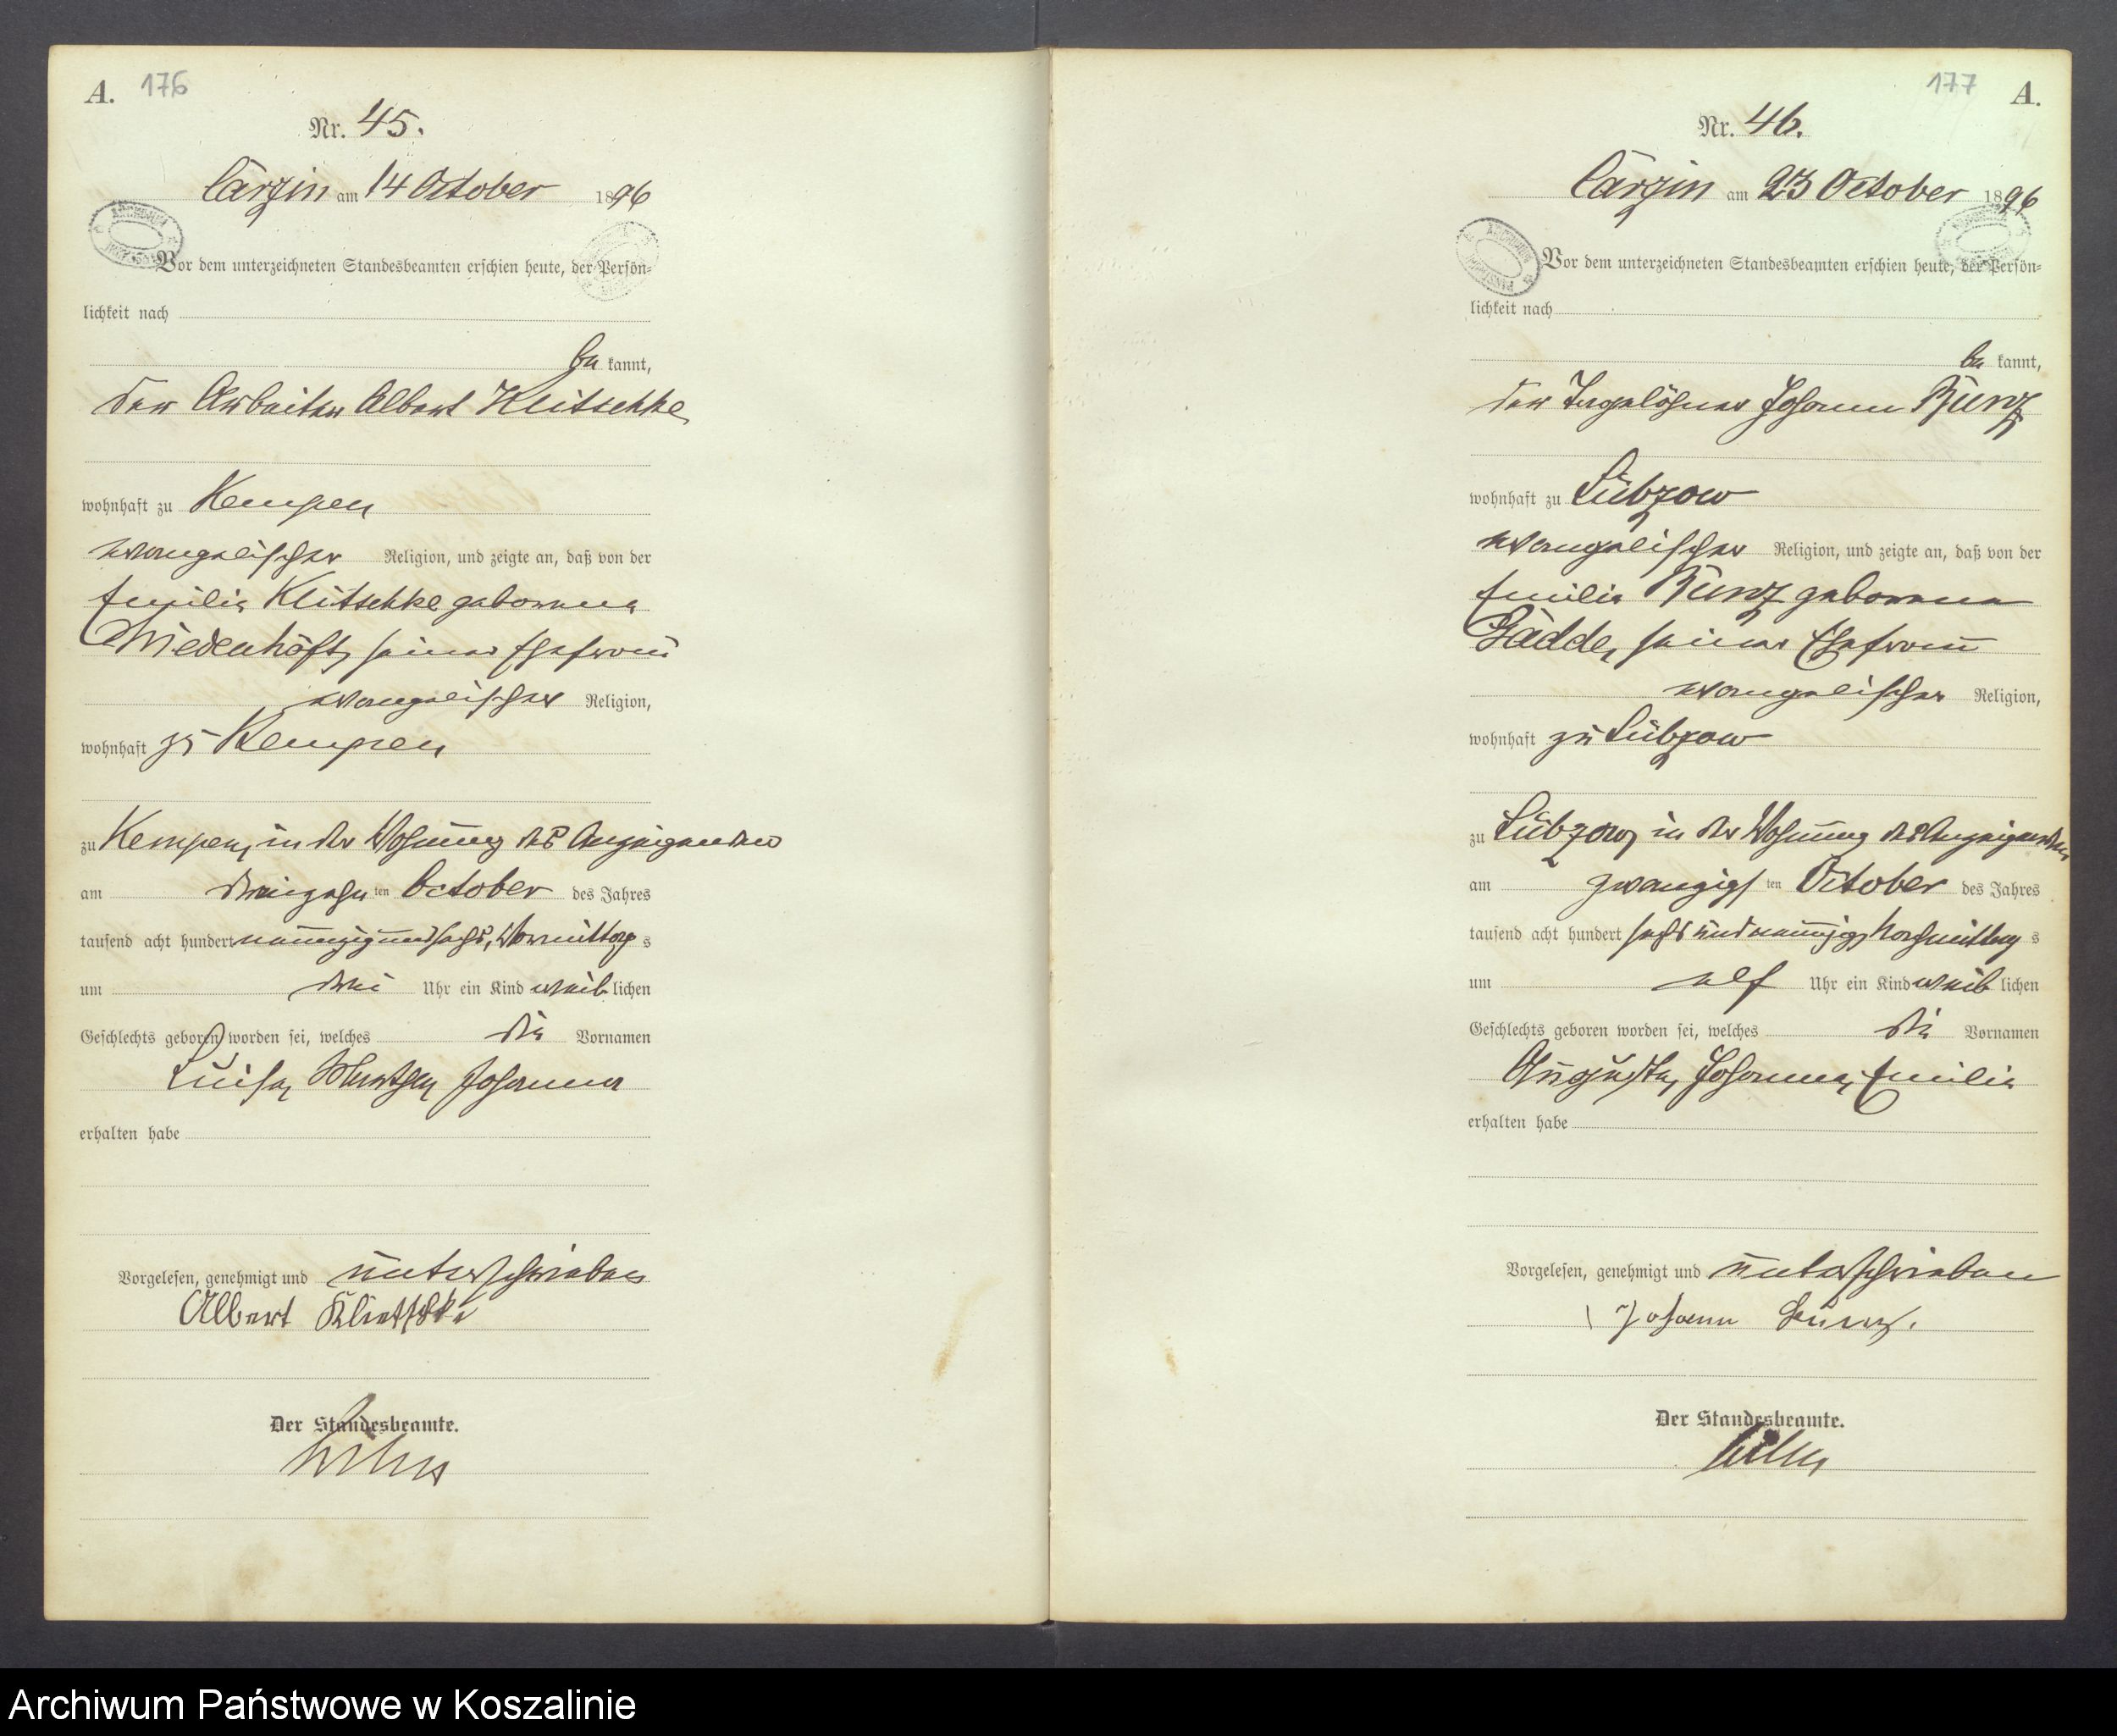 A. 176
Nr. 45.
Carzin am 14 October 1896
Vor dem unterzeichneten Standesbeamten erschien heute, der Persön-
lichkeit nach
be kannt,
der Arbeiter Albert Klitschke
wohnhaft zu Kempen
evangelischer Religion, und zeigte an, daß von der
Emilie Klitschke geborene
Wiedenhöft, seiner Ehefrau
evangelischer Religion,
wohnhaft zu Kempen
zu Kempen, in der Wohnung des Anzeigenden
am dreizehnten October des Jahres
tausend acht hundert neunzig und sechs, Vormittags
um drei Uhr ein Kind weiblichen
Geschlechts geboren worden sei, welches die Vornamen
Luise, Johanna
erhalten habe
Vorgelesen, genehmigt und unterschrieben
Albert Klietschke
Der Standesbeamte.
177 A.
Nr. 46.
Carzin am 23 October 1896
Vor dem unterzeichneten Standesbeamten erschien heute, der Persön-
lichkeit nach
be kannt,
der Tagelöhner Johann Kunz
wohnhaft zu Lübzow
evangelischer Religion, und zeigte an, daß von der
Emilie Kunz geborene
Gädde, seiner Ehefrau
evangelischer Religion,
wohnhaft zu Lübzow
zu Lübzow, in der Wohnung des Anzeigenden
am zwanzigsten October des Jahres
tausend acht hundert sechs und neunzig Nachmittags
um elf Uhr ein Kind weiblichen
Geschlechts geboren worden sei, welches die Vornamen
Auguste, Johanna, Emilie
erhalten habe
Vorgelesen, genehmigt und unterschrieben
Johann Kunz.
Der Standesbeamte.
Archiwum Państwowe w Koszalinie